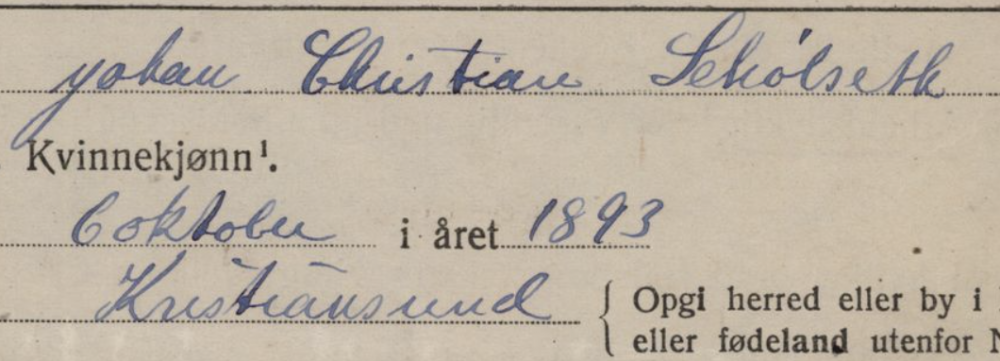 Johan Christian Schølseth
Kvinnekjønn¹.
6 oktober i året 1893
Kristiansund { Opgi herred eller by i
eller fødeland utenfor N